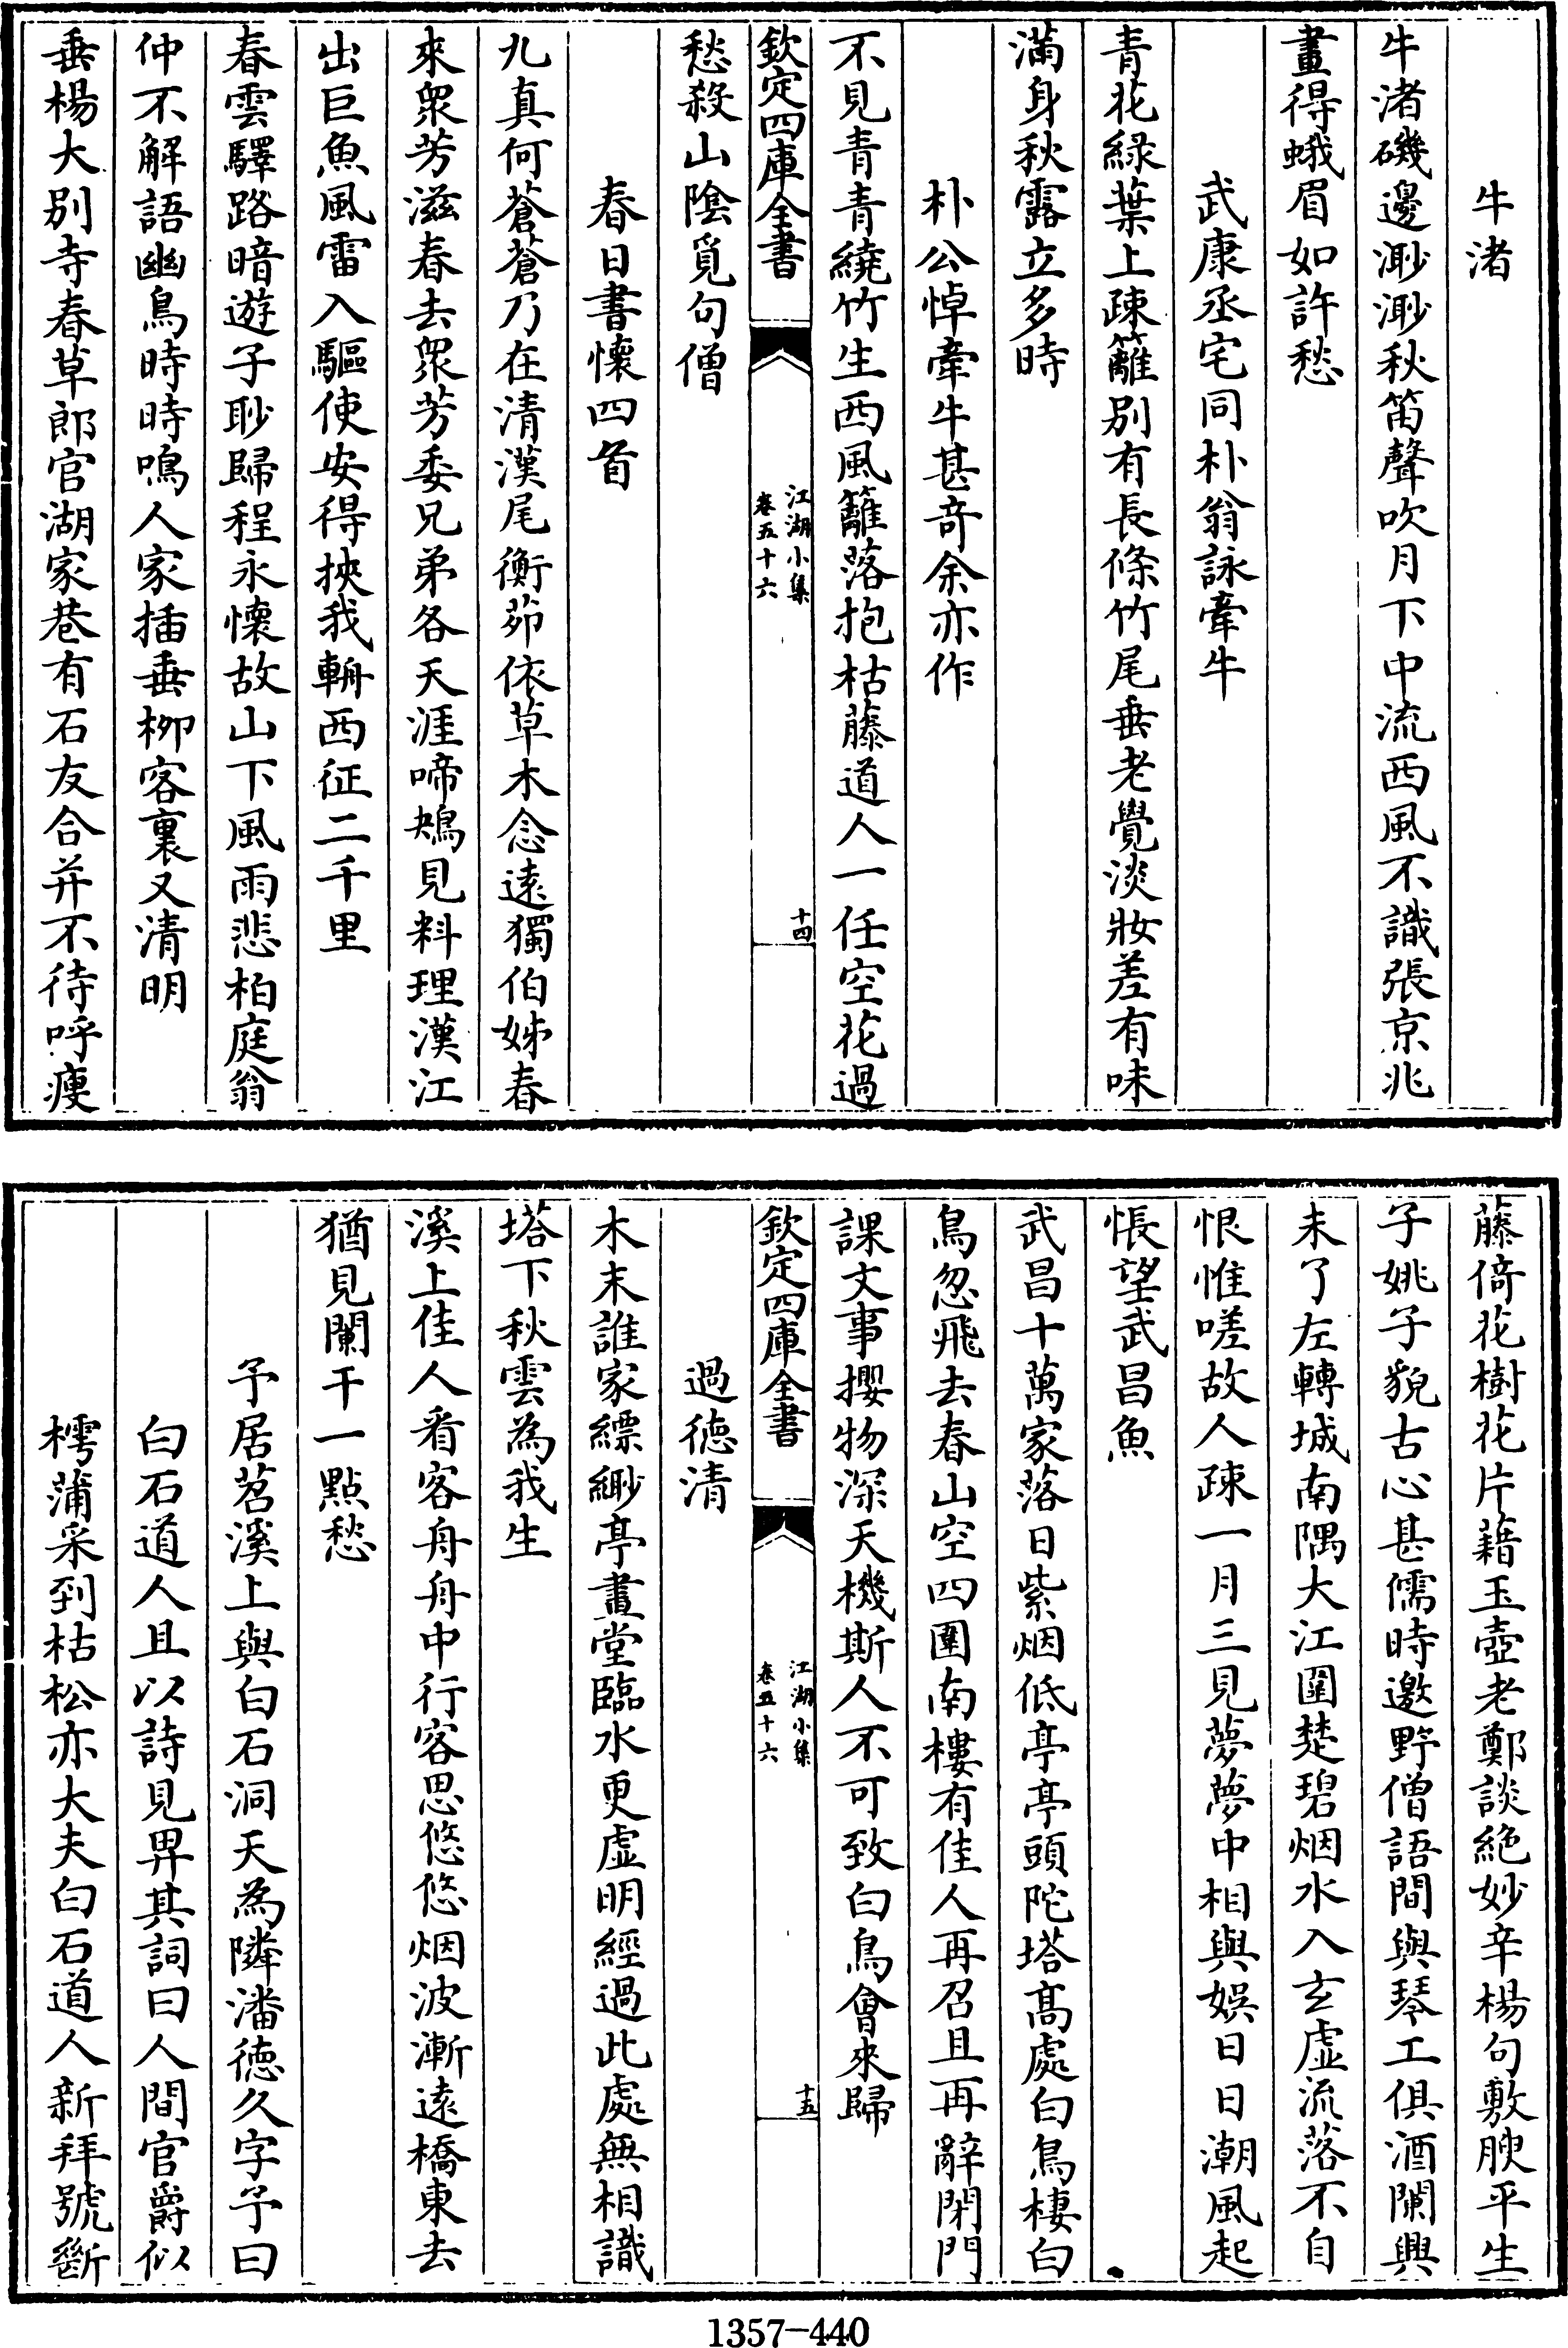 牛渚
牛渚磯邊渺渺秋笛聲吹月下中流西風不識張京兆
畫得蛾眉如許愁
武康丞宅同朴翁詠牽牛
青花綠葉上疎籬別有長條竹尾垂老覺淡妝差有味
滿身秋露立多時
朴公悼牽牛甚奇余亦作
不見青青繞竹生西風籬落抱枯藤道人一任空花過
欽定四庫全書
江湖小集
卷五十六
十四
愁殺山陰覓句僧
春日書懷四首
九真何蒼蒼乃在清漢尾衡茆依草木念遠獨伯姊春
來衆芳滋春去衆芳委兄弟各天涯啼鴂見料理漢江
出巨魚風雷入驅使安得挾我輈西征二千里
春雲驛路暗遊子眇歸程永懷故山下風雨悲柏庭翁
仲不解語幽鳥時時鳴人家插垂栁客裏又清明
垂楊大別寺春草郎官湖家巷有石友合并不待呼瘦
藤倚花樹花片藉玉壺老鄭談絶妙辛楊句敷腴平生
子姚子貌古心甚儒時邀野僧語間與琴工俱酒闌興
未了左轉城南隅大江圍楚碧烟水入玄虛流落不自
恨惟嗟故人疎一月三見夢夢中相與娛日日潮風起
悵望武昌魚
武昌十萬家落日紫烟低亭亭頭陀塔髙處白鳥棲白
鳥忽飛去春山空四圍南樓有佳人再召且再辭閉門
課文事攖物深天機斯人不可致白鳥會來歸
欽定四庫全書
江湖小集
卷五十六
十五
過德清
木末誰家縹緲亭畫堂臨水更虛明經過此處無相識
塔下秋雲為我生
溪上佳人看客舟舟中行客思悠悠烟波漸遠橋東去
猶見闌干一點愁
予居苕溪上與白石洞天為隣潘德久字予曰
白石道人且以詩見畀其詞曰人間官爵似
樗蒲采到枯松亦大夫白石道人新拜號斷
1357-440